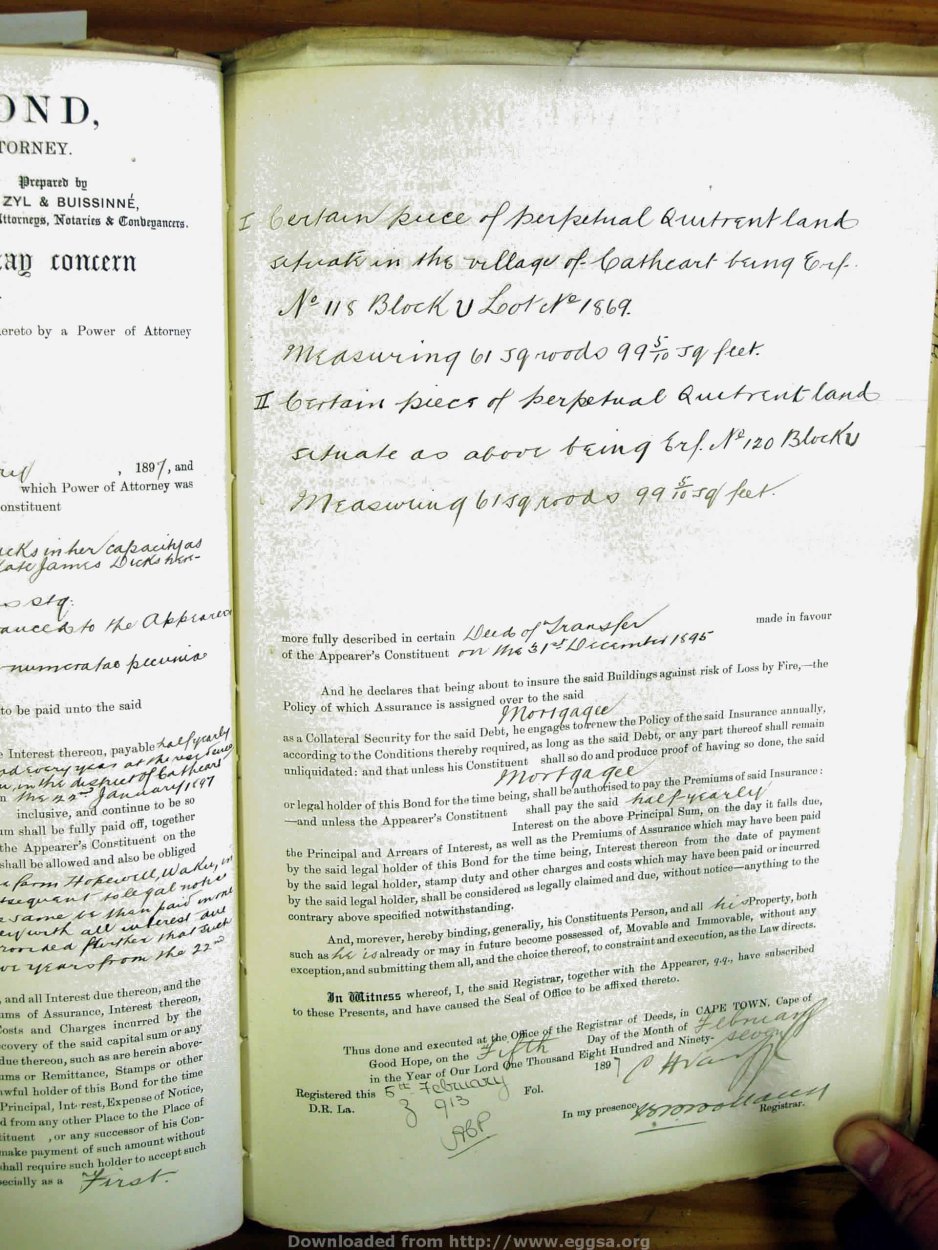 OND,
TORNEY.
Prepared by
ZYL & BUISSINNÉ,
Attorneys, Notaries & Conveyancers.
ay concern
ereto by a Power of Attorney
, 1897, and
which Power of Attorney was
onstituent
cks in her capacity as
late James Dicks her-
stg:
to the Appearer
numeratae pecunia
to be paid unto the said
e Interest thereon, payable half yearly
every year at the
in the district of Cathcart
the 22nd January 1897
inclusive, and continue to be so
um shall be fully paid off, together
the Appearer's Constituent on the
shall be allowed and also be obliged
farm Hopewell, in
to legal notice
same be then paid
with all interest due
further that such
years from the 22nd
, and all Interest due thereon, and the
ums of Assurance, Interest thereon,
Costs and Charges incurred by the
covery of the said capital sum or any
due thereon, such as are herein above-
ums or Remittance, Stamps or other
wful holder of this Bond for the time
Principal, Interest, Expense of Notice,
d from any other Place to the Place of
tituent , or any successor of his Con-
make payment of such amount without
shall require such holder to accept such
ecially as a First.
I Certain piece of perpetual Quitrent land
situate in the village of Cathcart being Erf.
No 118 Block U Lot No 1869.
Measuring 61 sq roods 99 5/10 sq feet.
II Certain piece of perpetual Quitrent land
situate as above being Erf. No 120 Block U
Measuring 61 sq roods 99 5/10 sq feet.
more fully described in certain Deed of Transfer made in favour
of the Appearer's Constituent on the 31st December 1895
And he declares that being about to insure the said Buildings against risk of Loss by Fire,—the
Policy of which Assurance is assigned over to the said
Mortgagee
as a Collateral Security for the said Debt, he engages to renew the Policy of the said Insurance annually,
according to the Conditions thereby required, as long as the said Debt, or any part thereof shall remain
unliquidated: and that unless his Constituent shall so do and produce proof of having so done, the said
Mortgagee
or legal holder of this Bond for the time being, shall be authorised to pay the Premiums of said Insurance:
—and unless the Appearer's Constituent shall pay the said half yearly
Interest on the above Principal Sum, on the day it falls due,
the Principal and Arrears of Interest, as well as the Premiums of Assurance which may have been paid
by the said legal holder of this Bond for the time being, Interest thereon from the date of payment
by the said legal holder, stamp duty and other charges and costs which may have been paid or incurred
by the said legal holder, shall be considered as legally claimed and due, without notice—anything to the
contrary above specified notwithstanding.
And, morever, hereby binding, generally, his Constituents Person, and all his Property, both
such as he is already or may in future become possessed of, Movable and Immovable, without any
exception, and submitting them all, and the choice thereof, to constraint and execution, as the Law directs.
In Witness whereof, I, the said Registrar, together with the Appearer, q.q., have subscribed
to these Presents, and have caused the Seal of Office to be affixed thereto.
Thus done and executed at the Office of the Registrar of Deeds, in CAPE TOWN, Cape of
Good Hope, on the Fifth Day of the Month of February
in the Year of Our Lord One Thousand Eight Hundred and Ninety-seven
Registered this 5th February 1897 Fol.
D.R. La. 3 913
In my presence,
Registrar.
Downloaded from http://www.eggsa.org